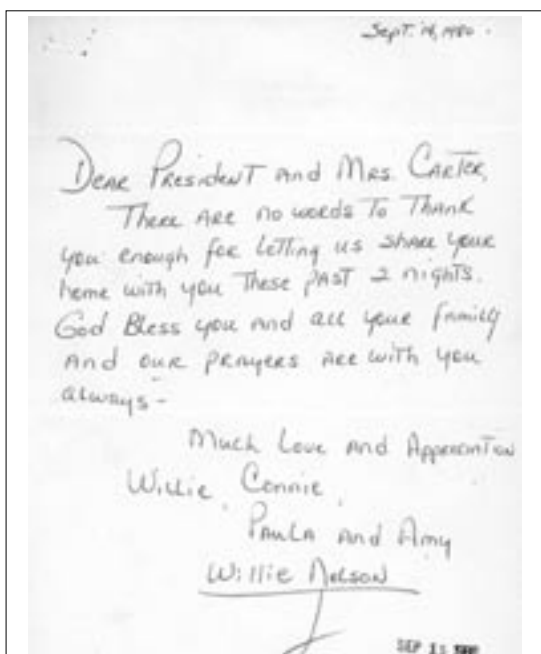 Sept. 14, 1980.
Dear President and Mrs. Carter,
There are no words to Thank
you enough for letting us share your
home with you These past 2 nights.
God Bless you and all your family
and our prayers are with you
always-
Much Love and Appreciation
Willie, Connie,
Paula and Amy
Willie Nelson
SEP 15